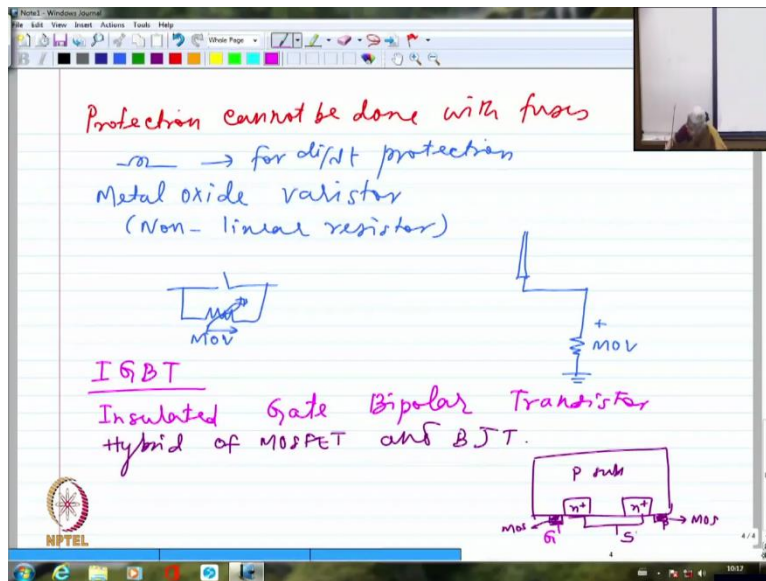 Note1 - Windows Journal
File Edit View Insert Actions Tools Help
Whole Page
B I
Protection cannot be done with fuses
→ for di/dt protection
Metal oxide varistor
(Non-linear resistor)
MOV
+
MOV
IGBT
Insulated Gate Bipolar Transistor
Hybrid of MOSFET and BJT.
P sub
n+ n+
MOS G S MOS
NPTEL
4/4
4
10:17